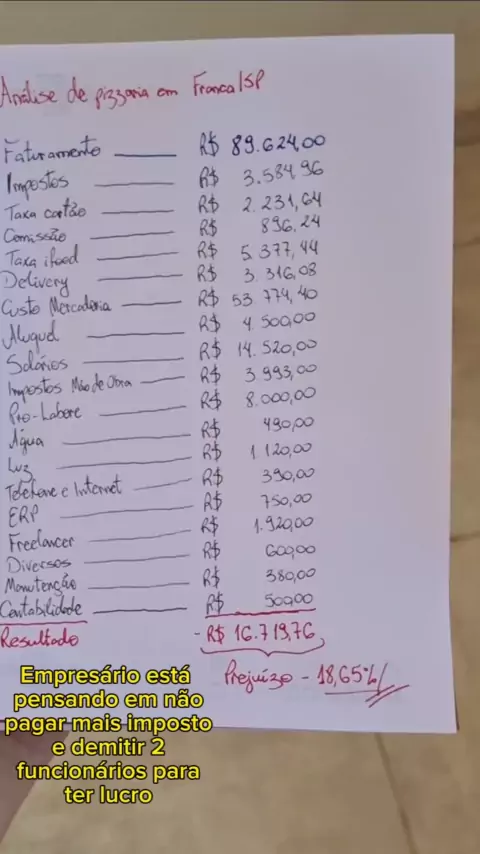 Análise de pizzaria em Franca/SP
Faturamento R$ 89.624,00
Impostos R$ 3.584,96
Taxa cartão R$ 2.231,64
Comissão R$ 896,24
Taxa ifood R$ 5.377,44
Delivery R$ 3.316,08
Custo Mercadoria R$ 53.774,40
Aluguel R$ 4.500,00
Salários R$ 14.520,00
Impostos Mão de Obra R$ 3.993,00
Pró-Labore R$ 8.000,00
Água R$ 490,00
Luz R$ 1.120,00
Telefone e Internet R$ 390,00
ERP R$ 750,00
Freelancer R$ 1.920,00
Diversos R$ 600,00
Manutenção R$ 380,00
Contabilidade R$ 500,00
Resultado - R$ 16.719,76
Prejuízo - 18,65%
Empresário está
pensando em não
pagar mais imposto
e demitir 2
funcionários para
ter lucro